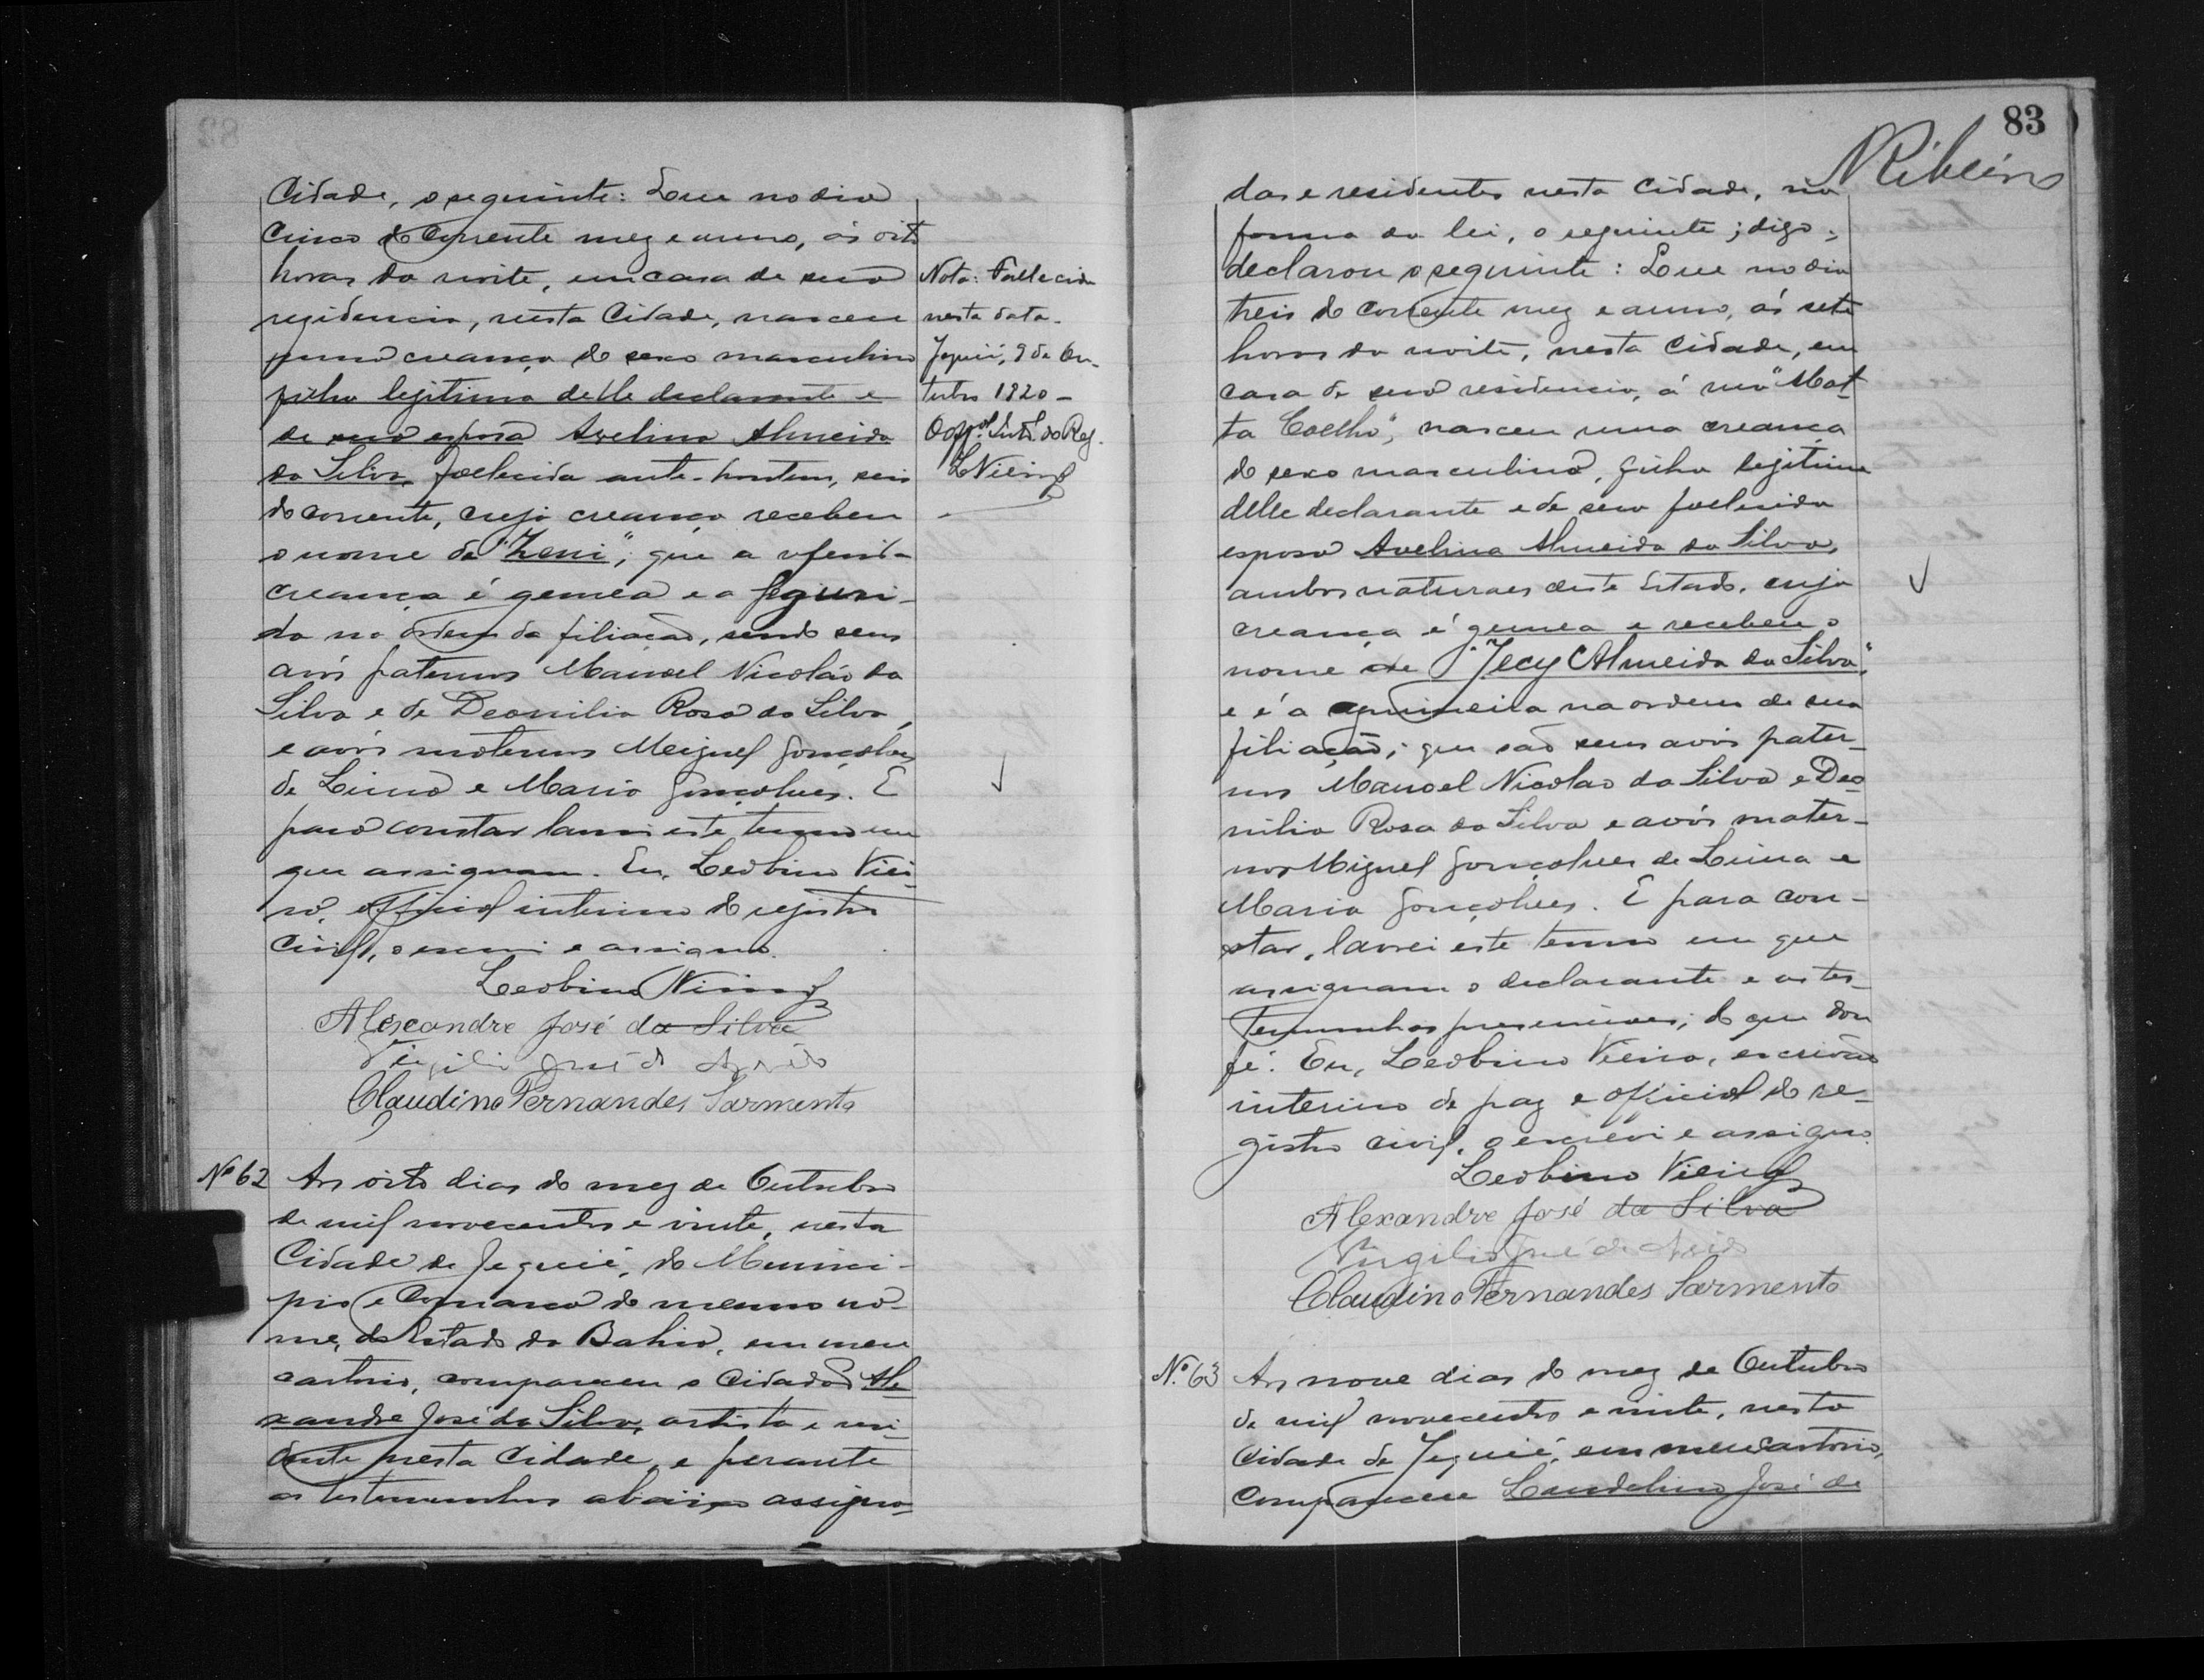 Cidade, o seguinte: Que no dia
cinco do corrente mez e anno, ás oito
horas da noite, em casa de sua
rezidencia, nesta Cidade, nasceu
uma creança do sexo masculino
filho legitimo delle declarante e
de sua esposa Avelina Almeida
da Silva, fallecida ante-hontem, seis
do corrente, cuja creança recebeu
o nome de "Zeni"; que a referida
creança é gemea e a segun-
da na ordem da filiação, sendo seus
avós paternos Manoel Nicoláo da
Silva e de Deonilia Rosa da Silva,
e avós maternos Meiguel Gonçalves
de Lima e Maria Gonçalves. E
para constar lavrei este termo em
que assignam. Eu, Leobino Viei-
ra, official interino do registro
Civil, o escrevi e assigno.
Leobino Vieira
Alexandre José da Silva
Virgilio José de
Claudino Fernandes Sarmento
Nota: Fallecida
nesta data.
Jequié, 9 de Ou-
tubro 1920 -
O Offal Int. do Reg.
LVieira
Nº 62 Aos oito dias do mez de Outubro
de mil novecentos e vinte, nesta
Cidade de Jequié, do Munici-
pio e Comarca do mesmo no-
me, do Estado da Bahia, em meu
cartorio, compareceu o Cidadão Ale-
xandre José da Silva, artista e resi-
dente nesta Cidade, e perante
as testemunhas abaixo assigna-
83
NRibeiro
das e residentes nesta Cidade, na
forma da lei, o seguinte; digo;
declarou o seguinte: Que no dia
treis do corrente mez e anno, ás sete
horas da noite, nesta Cidade, em
casa de sua residencia, á rua "Mot-
ta Coelho", nasceu uma creança
do sexo masculino, filho legitimo
delle declarante e de sua fallecida
esposa Avelina Almeida da Silva,
ambos naturaes deste Estado, cuja
creança é gemea e recebeu o
nome de "Jecy Almeida da Silva",
e é a primeira na ordem de sua
filiação; que são seus avós pater-
nos Manoel Nicolao da Silva e Deo-
nilia Rosa da Silva e avós mater-
nos Miguel Gonçalves de Lima e
Maria Gonçalves. E para con-
star, lavrei este termo em que
assignam o declarante e as tes-
temunhas presenciaes; do que dou
fé. Eu, Leobino Vieira, escrivão
interino de paz e official do re-
gistro civil, o escrevi e assigno.
Leobino Vieira
Alexandre José da Silva
Virgilio José de
Claudino Fernandes Sarmento
Nº 63 Aos nove dias do mez de Outubro
de mil novecentos e vinte, nesta
cidade de Jequié, em meu cartorio,
compareceu Laudelino José de